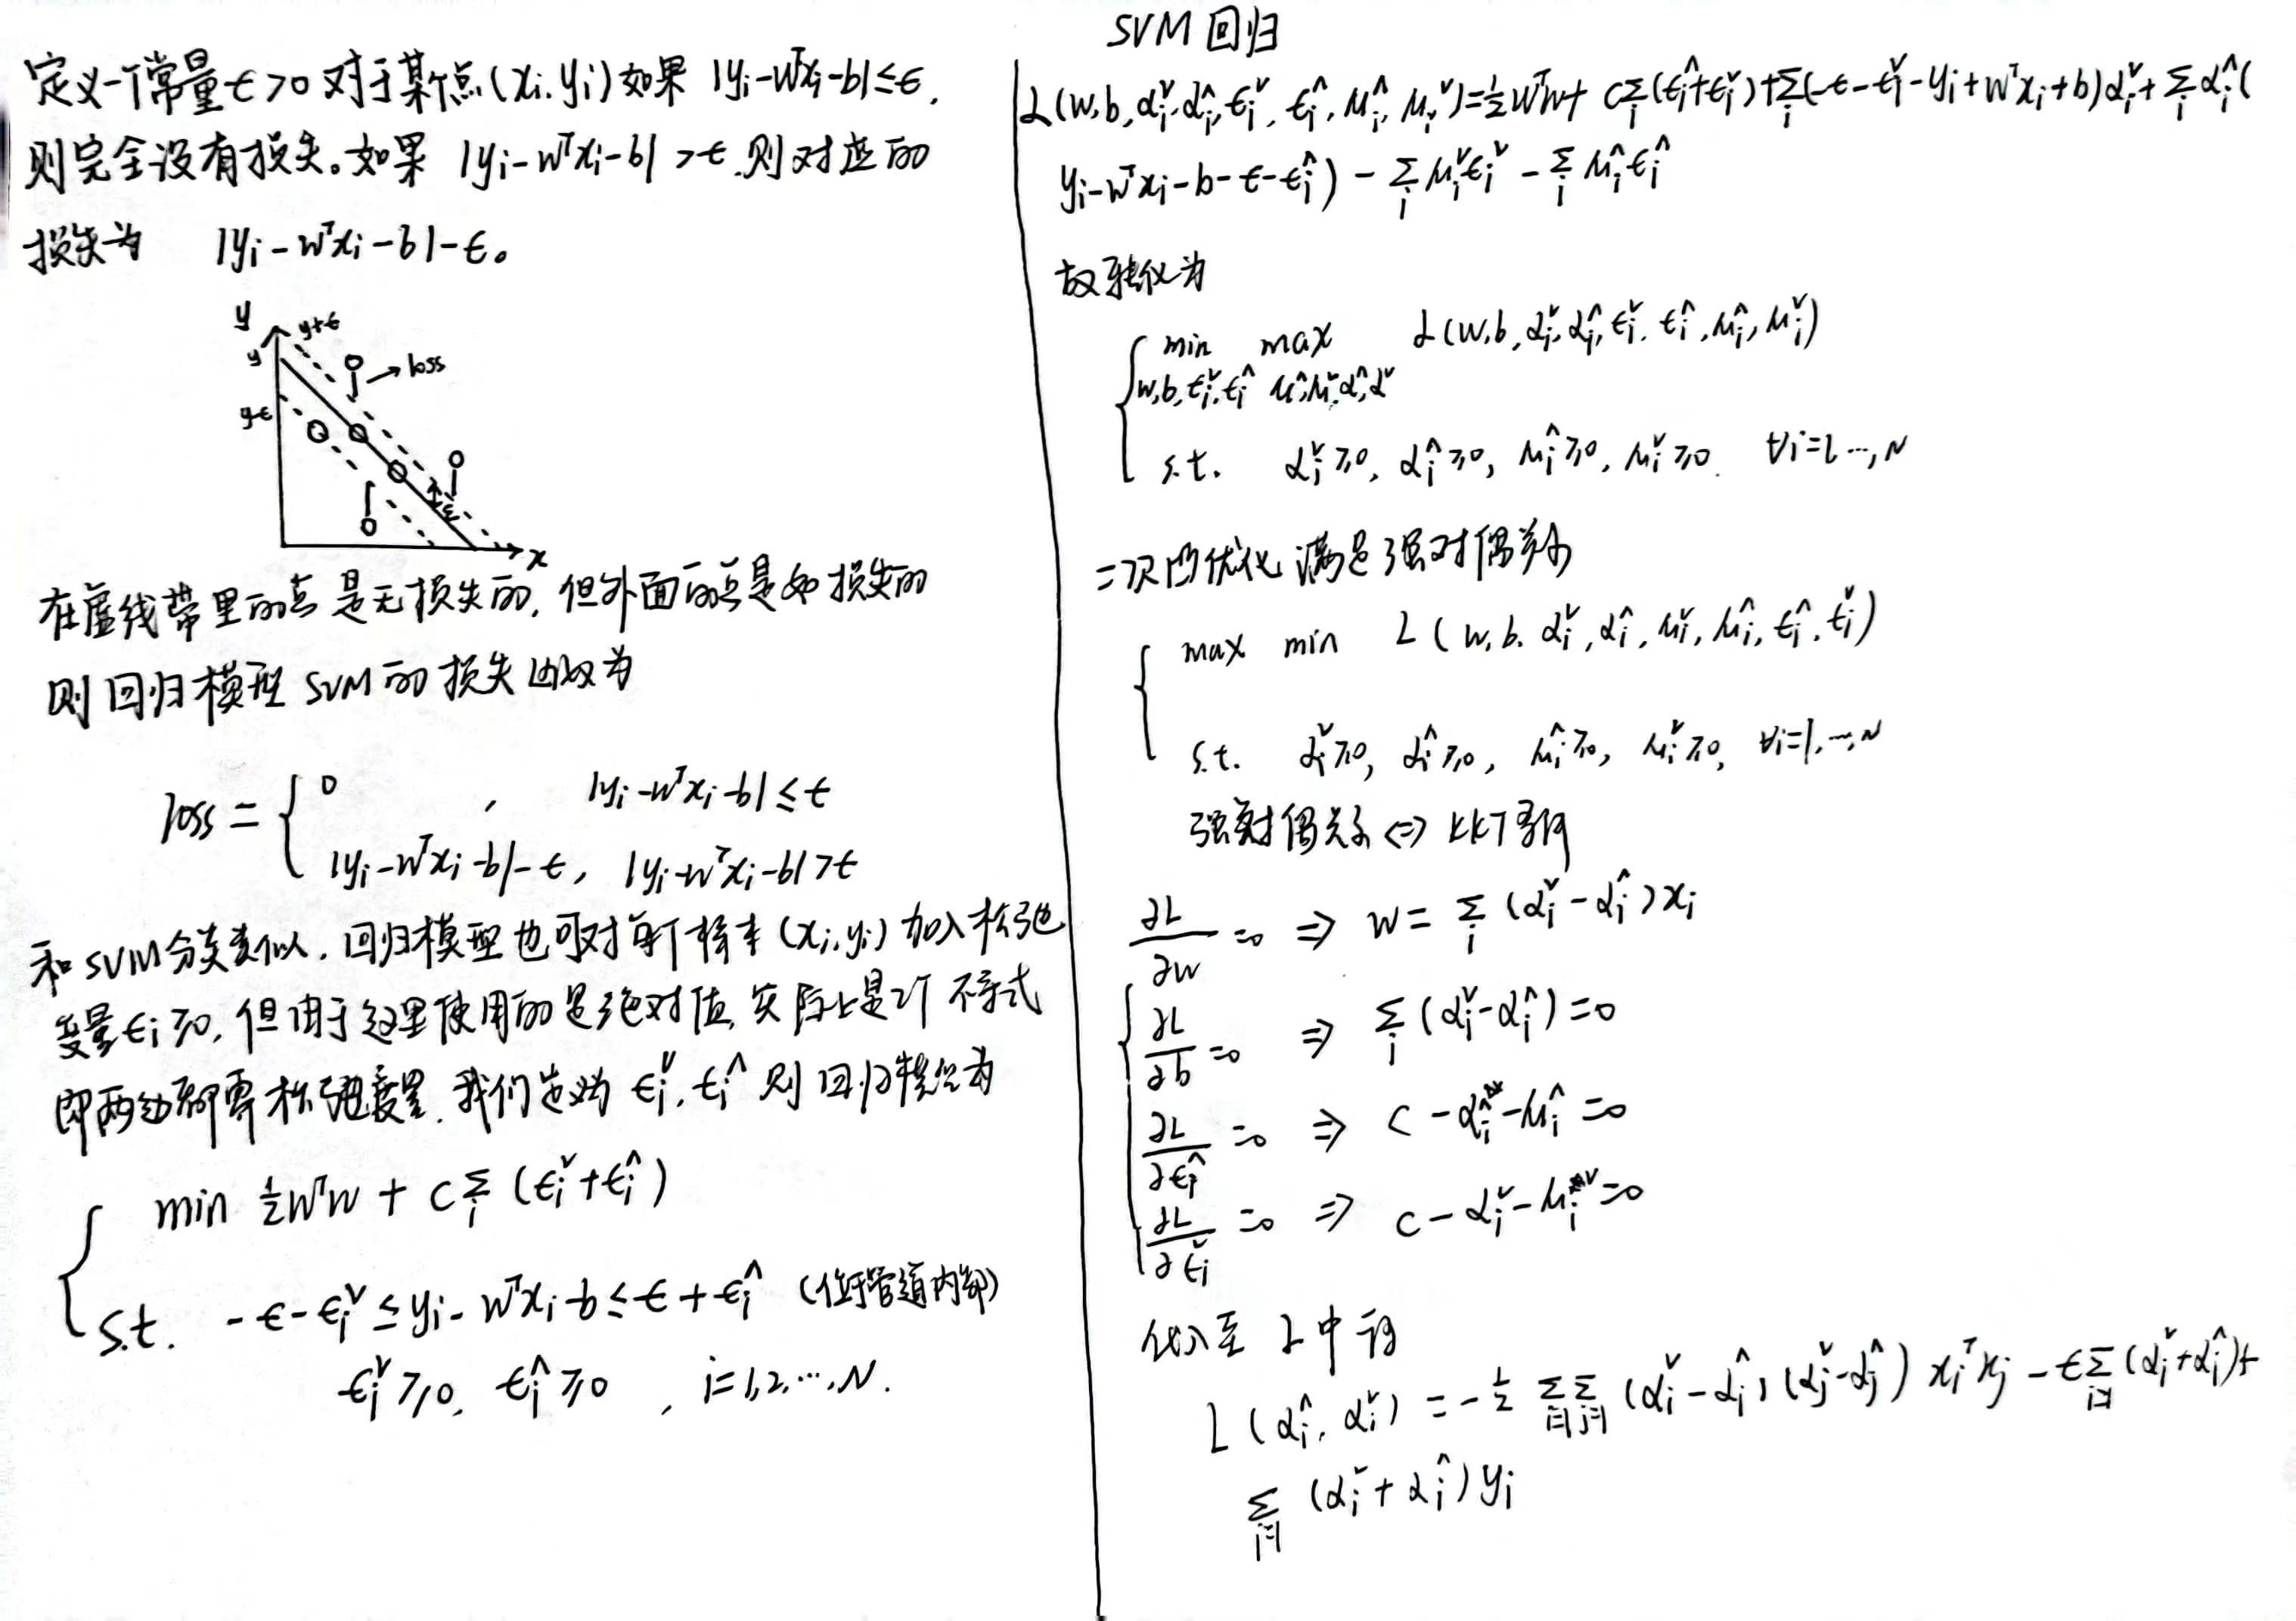 SVM回归
定义一个常量ϵ>0 对于某个点(xi, yi)如果 |yi-wᵀxi-b|≤ϵ,
则完全没有损失。如果 |yi-wᵀxi-b| >ϵ, 则对应的
损失为 |yi-wᵀxi-b|-ϵ。
y
y+ϵ
y
loss
y-ϵ
ϵ
x
在虚线带里的点是无损失的, 但外面的点是有损失的
则回归模型 SVM的损失函数为
loss = { 0 , |yi-wᵀxi-b|≤ϵ
|yi-wᵀxi-b|-ϵ, |yi-wᵀxi-b|>ϵ
和SVM分类类似, 回归模型也可对每个样本(xi, yi)加入松弛
变量ϵi≥0, 但由于这里使用的是绝对值, 实际上是2个不等式
即两边都需松弛变量. 我们定义为 ϵi^∨, ϵi^∧ 则回归转化为
{ min ½wᵀw + C∑i (ϵi^∨+ϵi^∧)
s.t. -ϵ-ϵi^∨ ≤ yi-wᵀxi-b ≤ ϵ+ϵi^∧ (位于管道内部)
ϵi^∨≥0, ϵi^∧≥0 , i=1,2,…,N.
L(w,b,αi^∨,αi^∧,ϵi^∨,ϵi^∧,μi^∧,μi^∨)=½wᵀw+C∑i(ϵi^∧+ϵi^∨)+∑i(-ϵ-ϵi^∨-yi+wᵀxi+b)αi^∨+∑iαi^∧(
yi-wᵀxi-b-ϵ-ϵi^∧) - ∑i μi^∨ϵi^∨ - ∑i μi^∧ϵi^∧
故转化为
{ min max L(w,b,αi^∨,αi^∧,ϵi^∨,ϵi^∧,μi^∧,μi^∨)
w,b,ϵi^∨,ϵi^∧ μ^∧,μ^∨,α^∧,α^∨
s.t. αi^∨≥0, αi^∧≥0, μi^∧≥0, μi^∨≥0. ∀i=1,…,N
二次凸优化 满足强对偶关系
{ max min L(w,b,αi^∨,αi^∧,μi^∨,μi^∧,ϵi^∧,ϵi^∨)
s.t. αi^∨≥0, αi^∧≥0, μi^∧≥0, μi^∨≥0, ∀i=1,…,N
强对偶关系 ⇔ KKT条件
∂L/∂w=0 ⇒ w=∑i (αi^∨-αi^∧)xi
∂L/∂b=0 ⇒ ∑i (αi^∨-αi^∧)=0
∂L/∂ϵi^∧=0 ⇒ C-αi^∧-μi^∧=0
∂L/∂ϵi^∨=0 ⇒ C-αi^∨-μi^∨=0
代入至 L中得
L(αi^∧,αi^∨)=-½ ∑i=1∑j=1 (αi^∨-αi^∧)(αj^∨-αj^∧) xiᵀxj -ϵ∑i=1(αi^∨+αi^∧)+
∑i=1 (αi^∨+αi^∧)yi